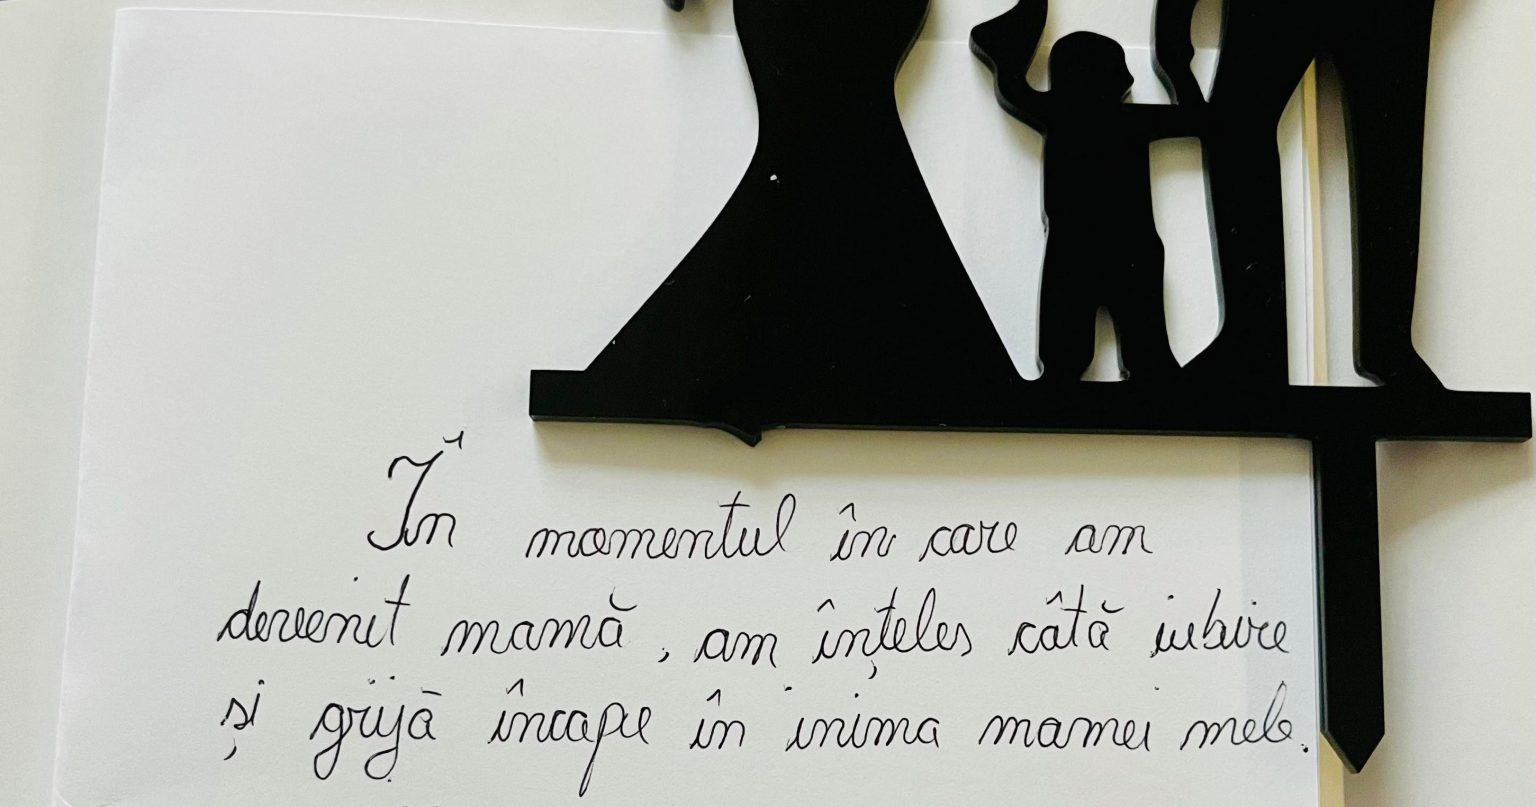 În momentul în care am
devenit mamă, am înțeles câtă iubire
și grijă încape în inima mamei mele.